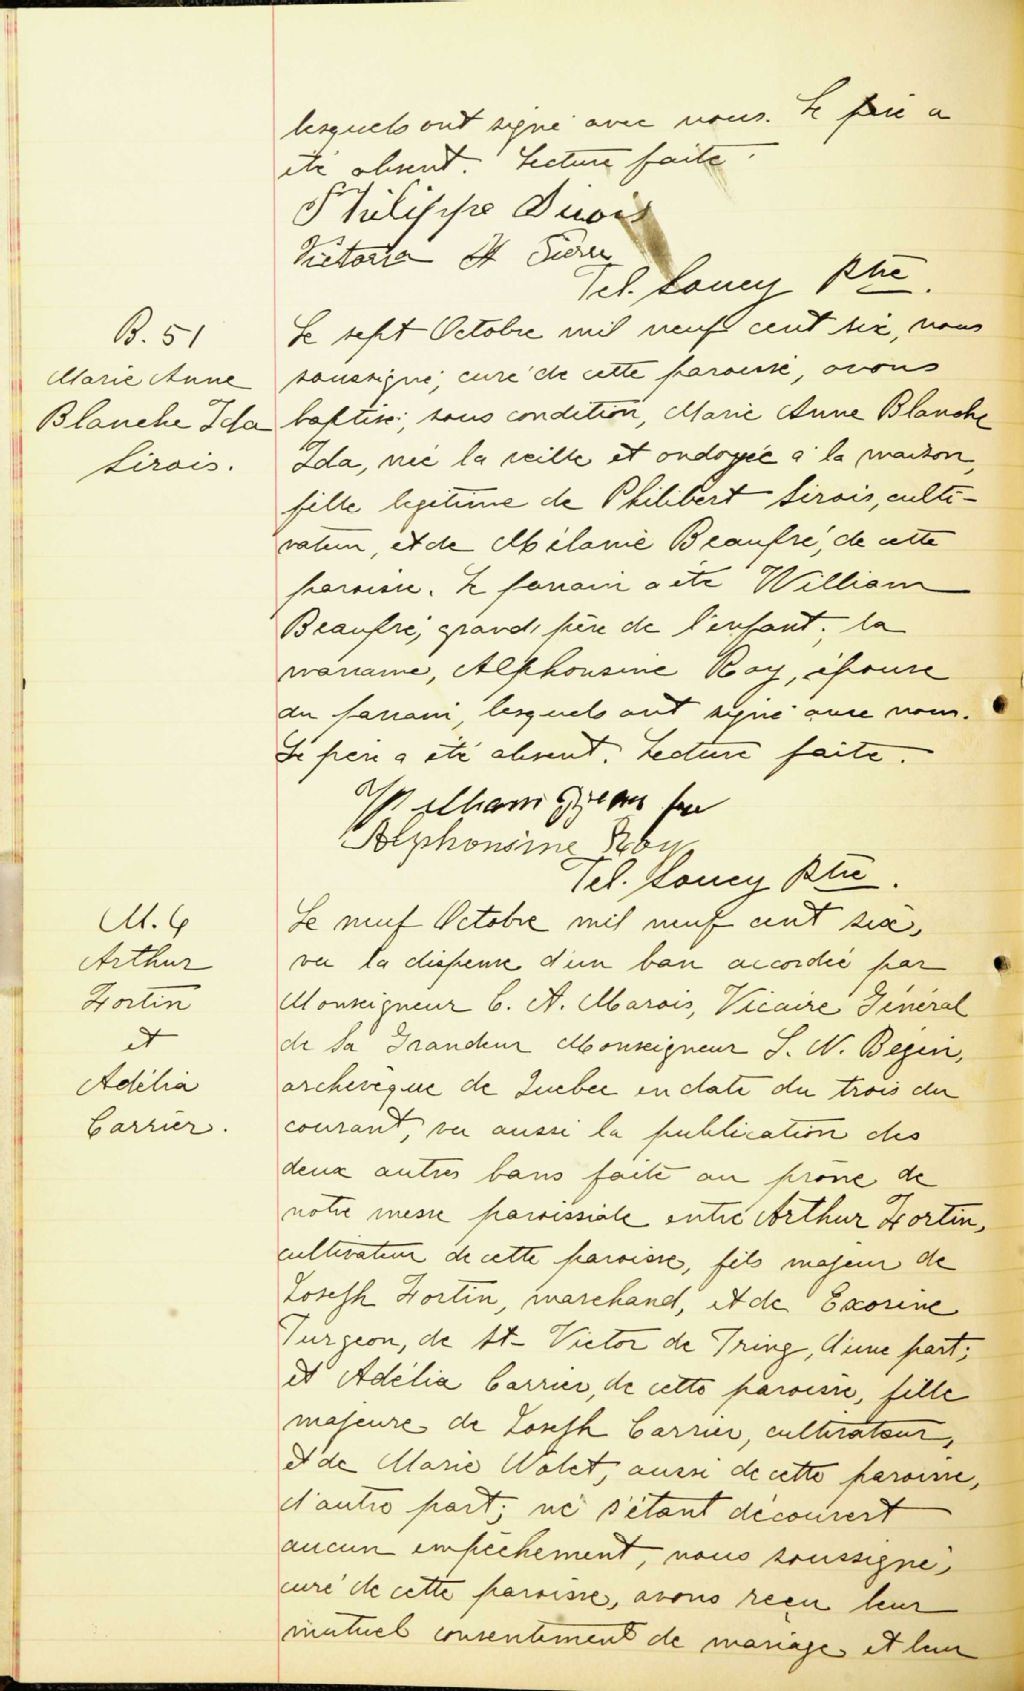 lesquels ont signé avec nous. Le père a
été absent. Lecture faite.
Philippe Sirois
Victoria St Pierre
Tel. Soucy Ptre.
B. 51
Marie Anne
Blanche Ida
Sirois.
Le sept Octobre mil neuf cent six, nous
soussigné, curé de cette paroisse, avons
baptisé, sous condition, Marie Anne Blanche
Ida, née la veille et ondoyée à la maison,
fille légitime de Philibert Sirois, culti-
vateur, et de Mélanie Beaupré, de cette
paroisse. Le parrain a été William
Beaupré, grand père de l'enfant; la
marraine, Alphonsine Roy, épouse
du parrain, lesquels ont signé avec nous.
Le père a été absent. Lecture faite.
William Beaupre
Alphonsine Roy
Tel. Soucy Ptre.
M. 4
Arthur
Fortin
et
Adélia
Carrier.
Le neuf Octobre mil neuf cent six,
vu la dispense d'un ban accordée par
Monseigneur C. A. Marois, Vicaire Général
de Sa Grandeur Monseigneur L. N. Bégin,
archevêque de Québec en date du trois du
courant, vu aussi la publication des
deux autres bans faite au prône de
notre messe paroissiale entre Arthur Fortin,
cultivateur de cette paroisse, fils majeur de
Joseph Fortin, marchand, et de Exorine
Turgeon, de St Victor de Tring, d'une part;
et Adélia Carrier, de cette paroisse, fille
majeure de Joseph Carrier, cultivateur,
et de Marie Nolet, aussi de cette paroisse,
d'autre part; ne s'étant découvert
aucun empêchement, nous soussigné,
curé de cette paroisse, avons reçu leur
mutuel consentement de mariage et leur